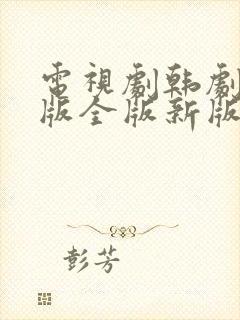 電視劇韩劇
版全版新版
彭芳